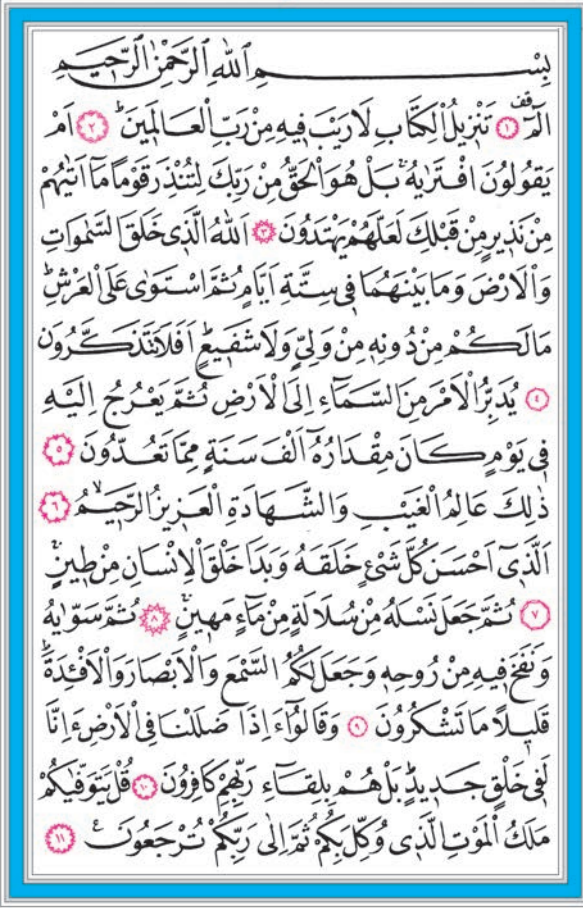 بِسْــــــــــــمِ اللهِ الرَّحْمٰنِ الرَّحٖيمِ
الٓمٓ ۚ ﴿١﴾ تَنْزٖيلُ الْكِتَابِ لَا رَيْبَ فٖيهِ مِنْ رَبِّ الْعَالَمٖينَ ؕ ﴿٢﴾ اَمْ
يَقُولُونَ افْتَرٰيهُ ۚ بَلْ هُوَ الْحَقُّ مِنْ رَبِّكَ لِتُنْذِرَ قَوْمًا مَٓا اَتٰيهُمْ
مِنْ نَذٖيرٍ مِنْ قَبْلِكَ لَعَلَّهُمْ يَهْتَدُونَ ﴿٣﴾ اَللهُ الَّذٖى خَلَقَ السَّمٰوَاتِ
وَالْاَرْضَ وَمَا بَيْنَهُمَا فٖى سِتَّةِ اَيَّامٍ ثُمَّ اسْتَوٰى عَلَى الْعَرْشِ ؕ
مَا لَكُمْ مِنْ دُونِهٖ مِنْ وَلِىٍّ وَلَا شَفٖيعٍ ؕ اَفَلَا تَتَذَكَّرُونَ
﴿٤﴾ يُدَبِّرُ الْاَمْرَ مِنَ السَّمَٓاءِ اِلَى الْاَرْضِ ثُمَّ يَعْرُجُ اِلَيْهِ
فٖى يَوْمٍ كَانَ مِقْدَارُهُٓ اَلْفَ سَنَةٍ مِمَّا تَعُدُّونَ ﴿٥﴾
ذٰلِكَ عَالِمُ الْغَيْبِ وَالشَّهَادَةِ الْعَزٖيزُ الرَّحٖيمُ ۙ ﴿٦﴾
اَلَّذٖٓى اَحْسَنَ كُلَّ شَىْءٍ خَلَقَهُ وَبَدَاَ خَلْقَ الْاِنْسَانِ مِنْ طٖينٍ ۚ
﴿٧﴾ ثُمَّ جَعَلَ نَسْلَهُ مِنْ سُلَالَةٍ مِنْ مَٓاءٍ مَهٖينٍ ۚ ﴿٨﴾ ثُمَّ سَوّٰيهُ
وَنَفَخَ فٖيهِ مِنْ رُوحِهٖ وَجَعَلَ لَكُمُ السَّمْعَ وَالْاَبْصَارَ وَالْاَفْـِٔدَةَ ؕ
قَلٖيلًا مَا تَشْكُرُونَ ﴿٩﴾ وَقَالُٓوا ءَاِذَا ضَلَلْنَا فِى الْاَرْضِ ءَاِنَّا
لَفٖى خَلْقٍ جَدٖيدٍ ؕ بَلْ هُمْ بِلِقَٓاءِ رَبِّهِمْ كَافِرُونَ ﴿١٠﴾ قُلْ يَتَوَفّٰيكُمْ
مَلَكُ الْمَوْتِ الَّذٖى وُكِّلَ بِكُمْ ثُمَّ اِلٰى رَبِّكُمْ تُرْجَعُونَ ۟ ع ﴿١١﴾